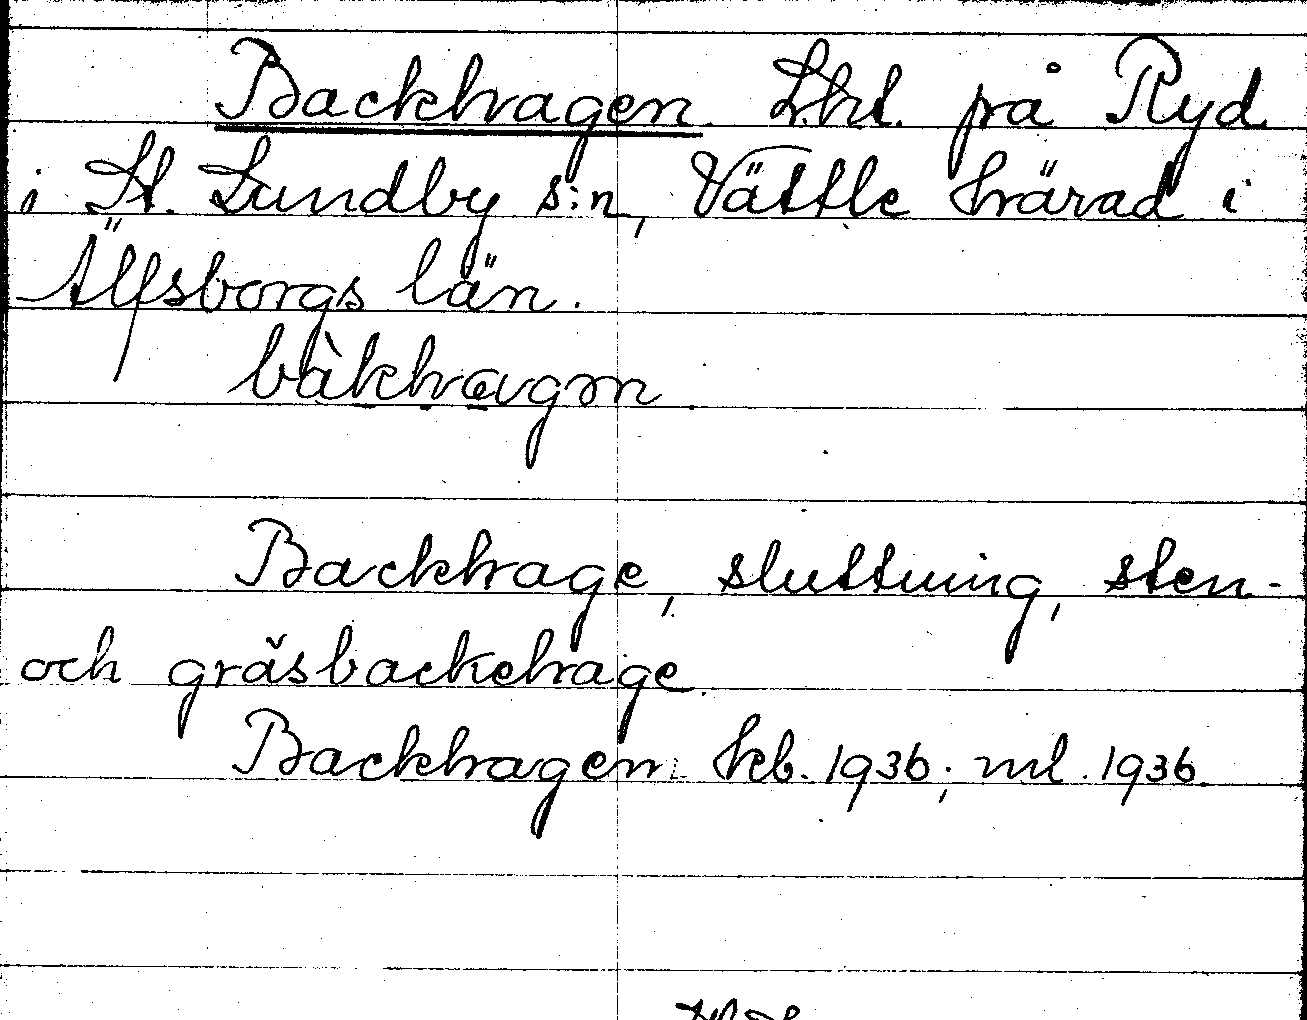 Backhagen. Lht. på Ryd
i St. Lundby s:n, Vättle härad i
Älfsborgs län.
Backhage, sluttning, sten-
och gräsbackehage.
Backhagen kb. 1936; ml. 1936.